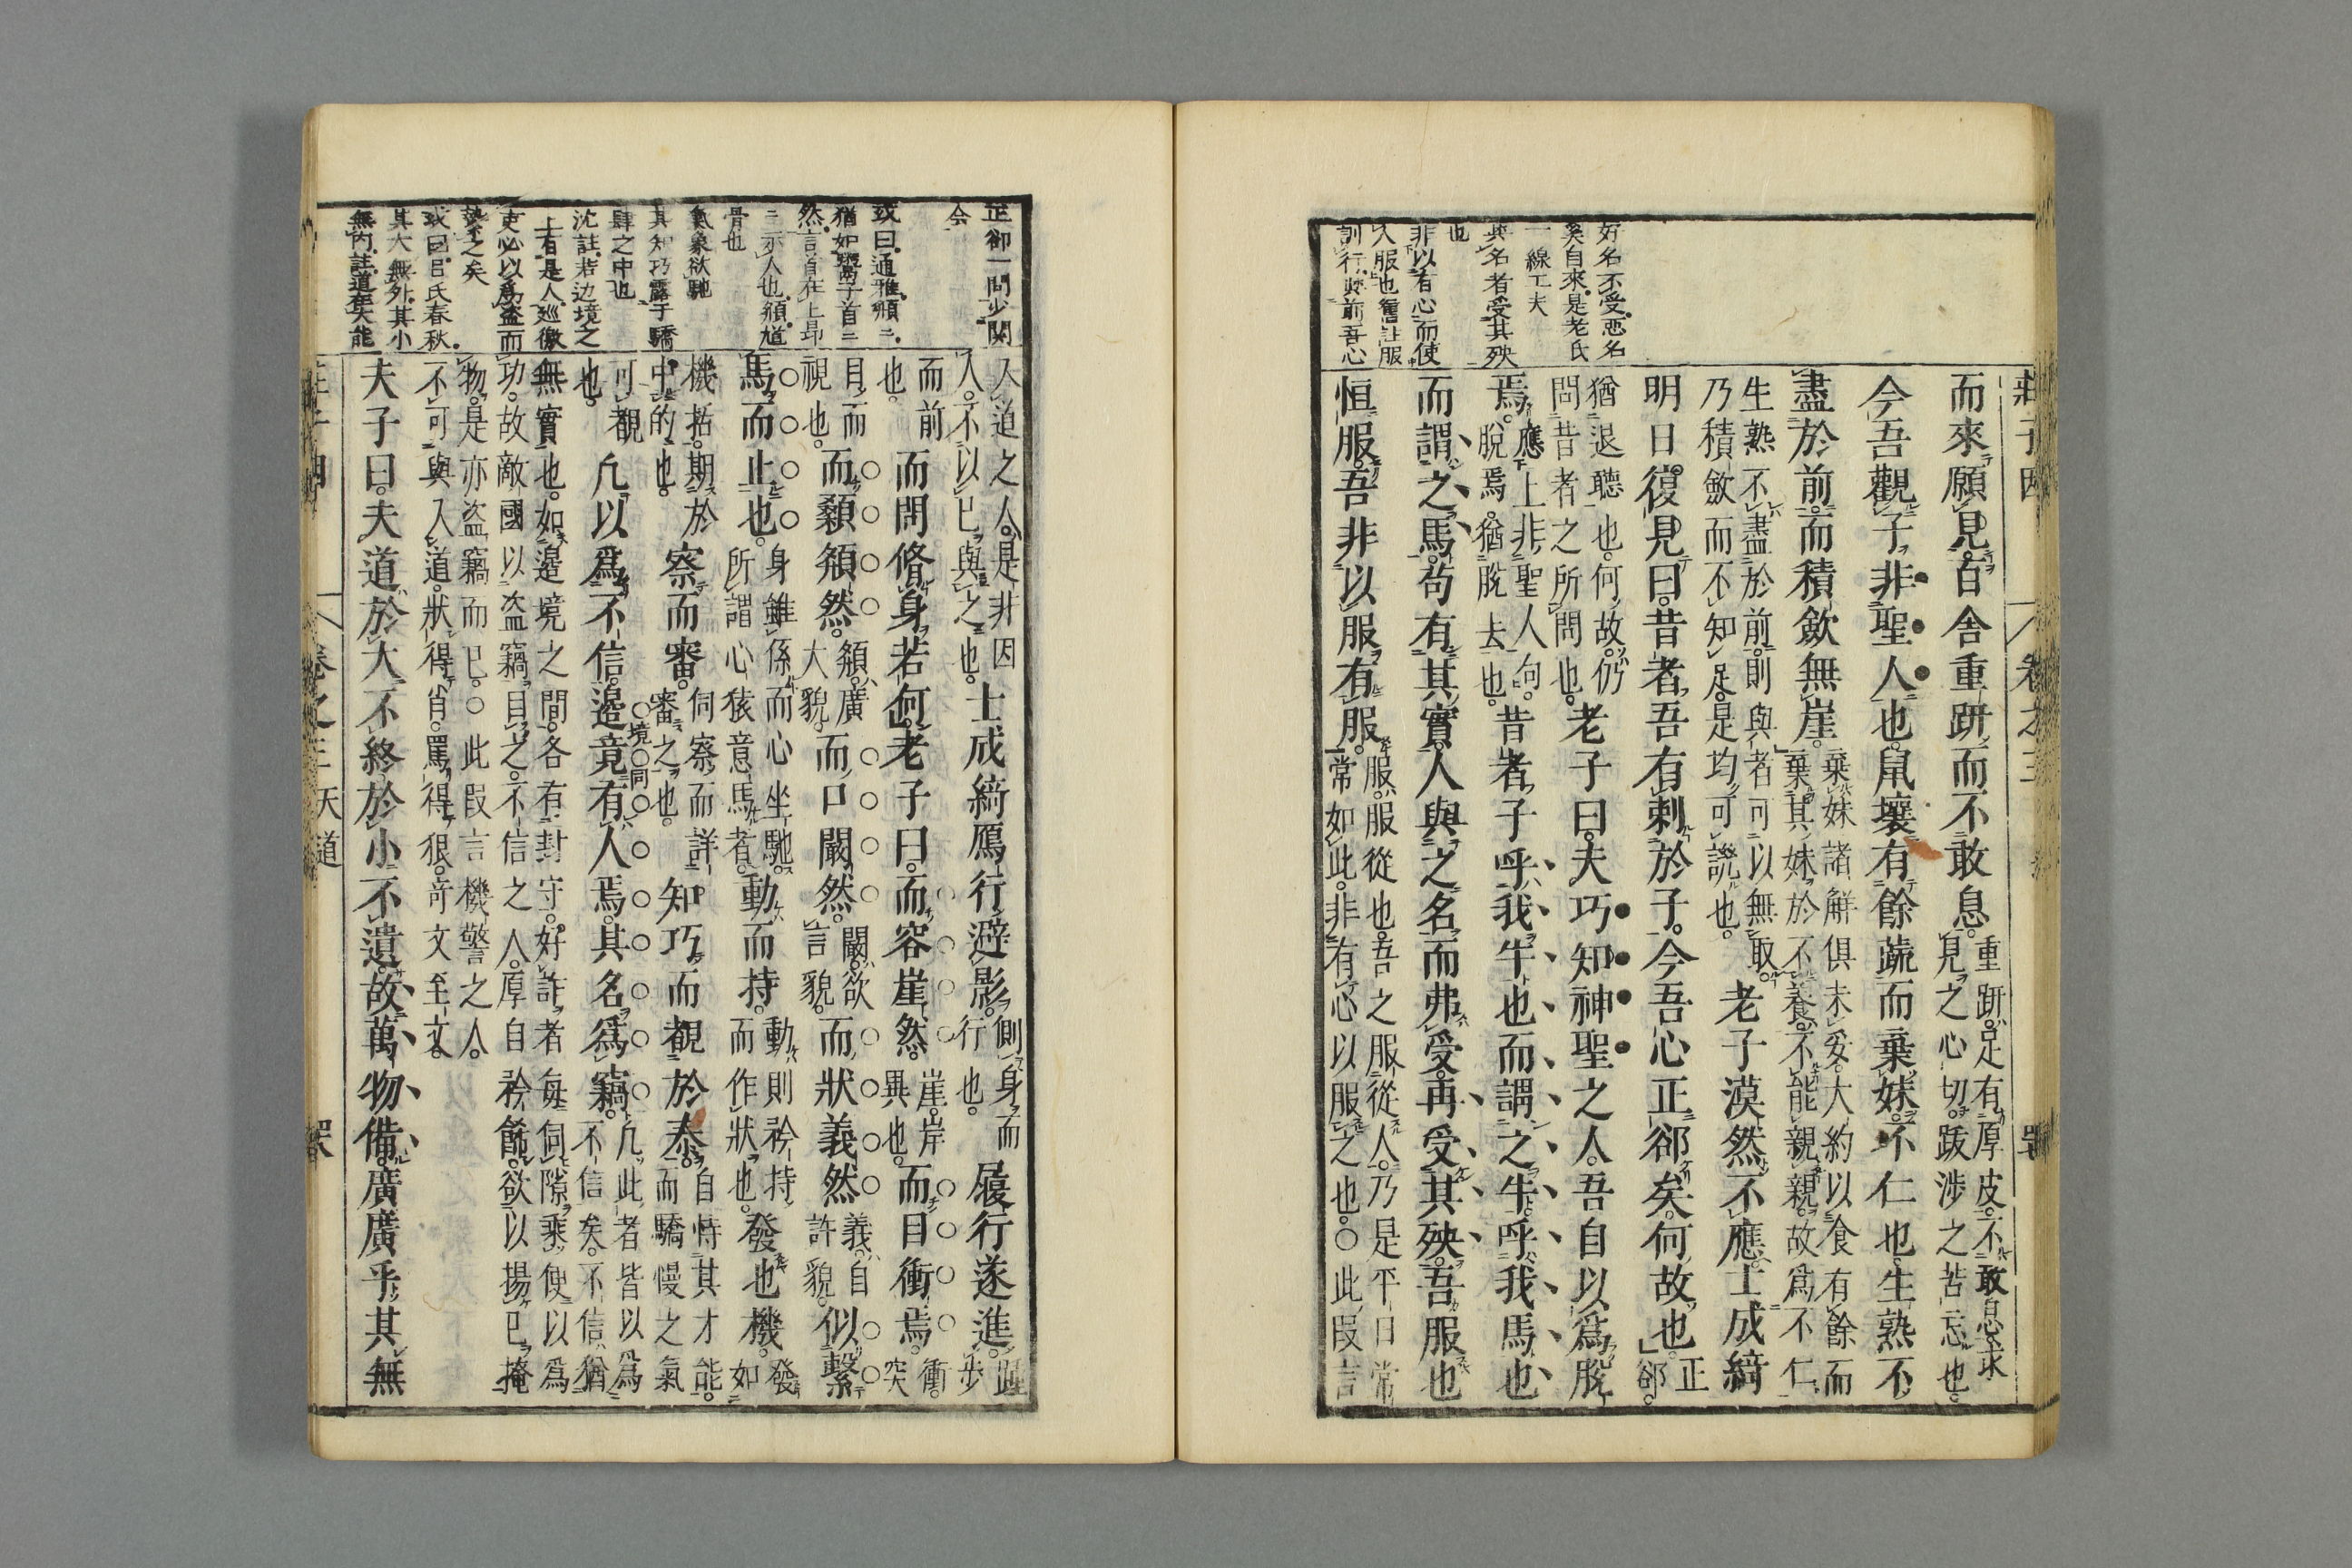 莊子四　卷之三
好名不受惡名
奚自來是老氏
一線工夫
其名者受其殃
也
非以有心而使
人服也舊註服
訓行與前吾心
而來願見百舍重趼而不敢息
重趼足有厚皮不敢息求
見之心切跋涉之苦忘也
今吾觀子非聖人也鼠壤有餘蔬而棄妹不仁也生熟不
盡於前而積斂無崖
棄妹諸解俱未妥大約以食有餘而
棄其妹於不養不能親親故爲不仁
生熟不盡於前則與者可以無取
乃積斂而不知足是均可說也
老子漠然不應士成綺
明日復見曰昔者吾有刺於子今吾心正郤矣何故也
正
郤
猶退聽也何故仍
問昔者之所問也
老子曰夫巧知神聖之人吾自以爲脫
焉
應上非聖人句
脫焉猶脫去也
昔者子呼我牛也而謂之牛呼我馬也
而謂之馬苟有其實人與之名而弗受再受其殃吾服也
恒服吾非以服有服
服服從也吾之服從人乃是平日常
常如此非有心以服之也○此段言
正卻一問少關
会
或曰通雅頯
猶如鬻子首
然言首在上昻
示人也頯道
骨也
氣象欲馳
其知巧露于驕
肆之中也
沈註若边境之
上有是人巡徼
吏必以爲盜而
縶之矣
或曰呂氏春秋
其大無外其小
無内註道在大能
入道之人是非因
人不以已與之也
士成綺鴈行避影
側身而
行也
履行遂進
步
而前
也
而問脩身若何老子曰而容崖然
崖岸
異也
而目衝焉
衝
突
目而
視也
而顙頯然
頯廣
大貌
而口闞然
闞欲
言貌
而狀義然
義自
許貌
似繫
馬而止也
身雖係而心坐馳
所謂心猿意馬者
動而持
動則矜持
而作狀也
發也機
發
如
機括期於
中的也
察而審
伺察而詳
審之也
知巧而覩於泰
自恃其才能
而驕慢之氣
可覩
也
凢以爲不信邉竟有人焉其名爲竊
境　同
凢此者皆以爲
不信矣不信猶
無實也如邉境之間各有封守好詐者每伺隙乘便以爲
功故敵國以盜竊目之不信之人厚自矜餙欲以揚已掩
物是亦盜竊而已○此段言機警之人
不可與入道狀得肖罵得狠竒文至文
夫子曰夫道於大不終於小不遺故萬物備廣廣乎其無
卷之三　天道